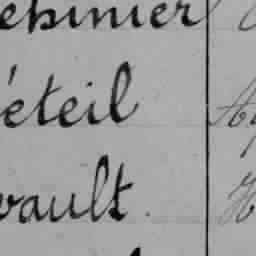 ehinier
éteil
vault.